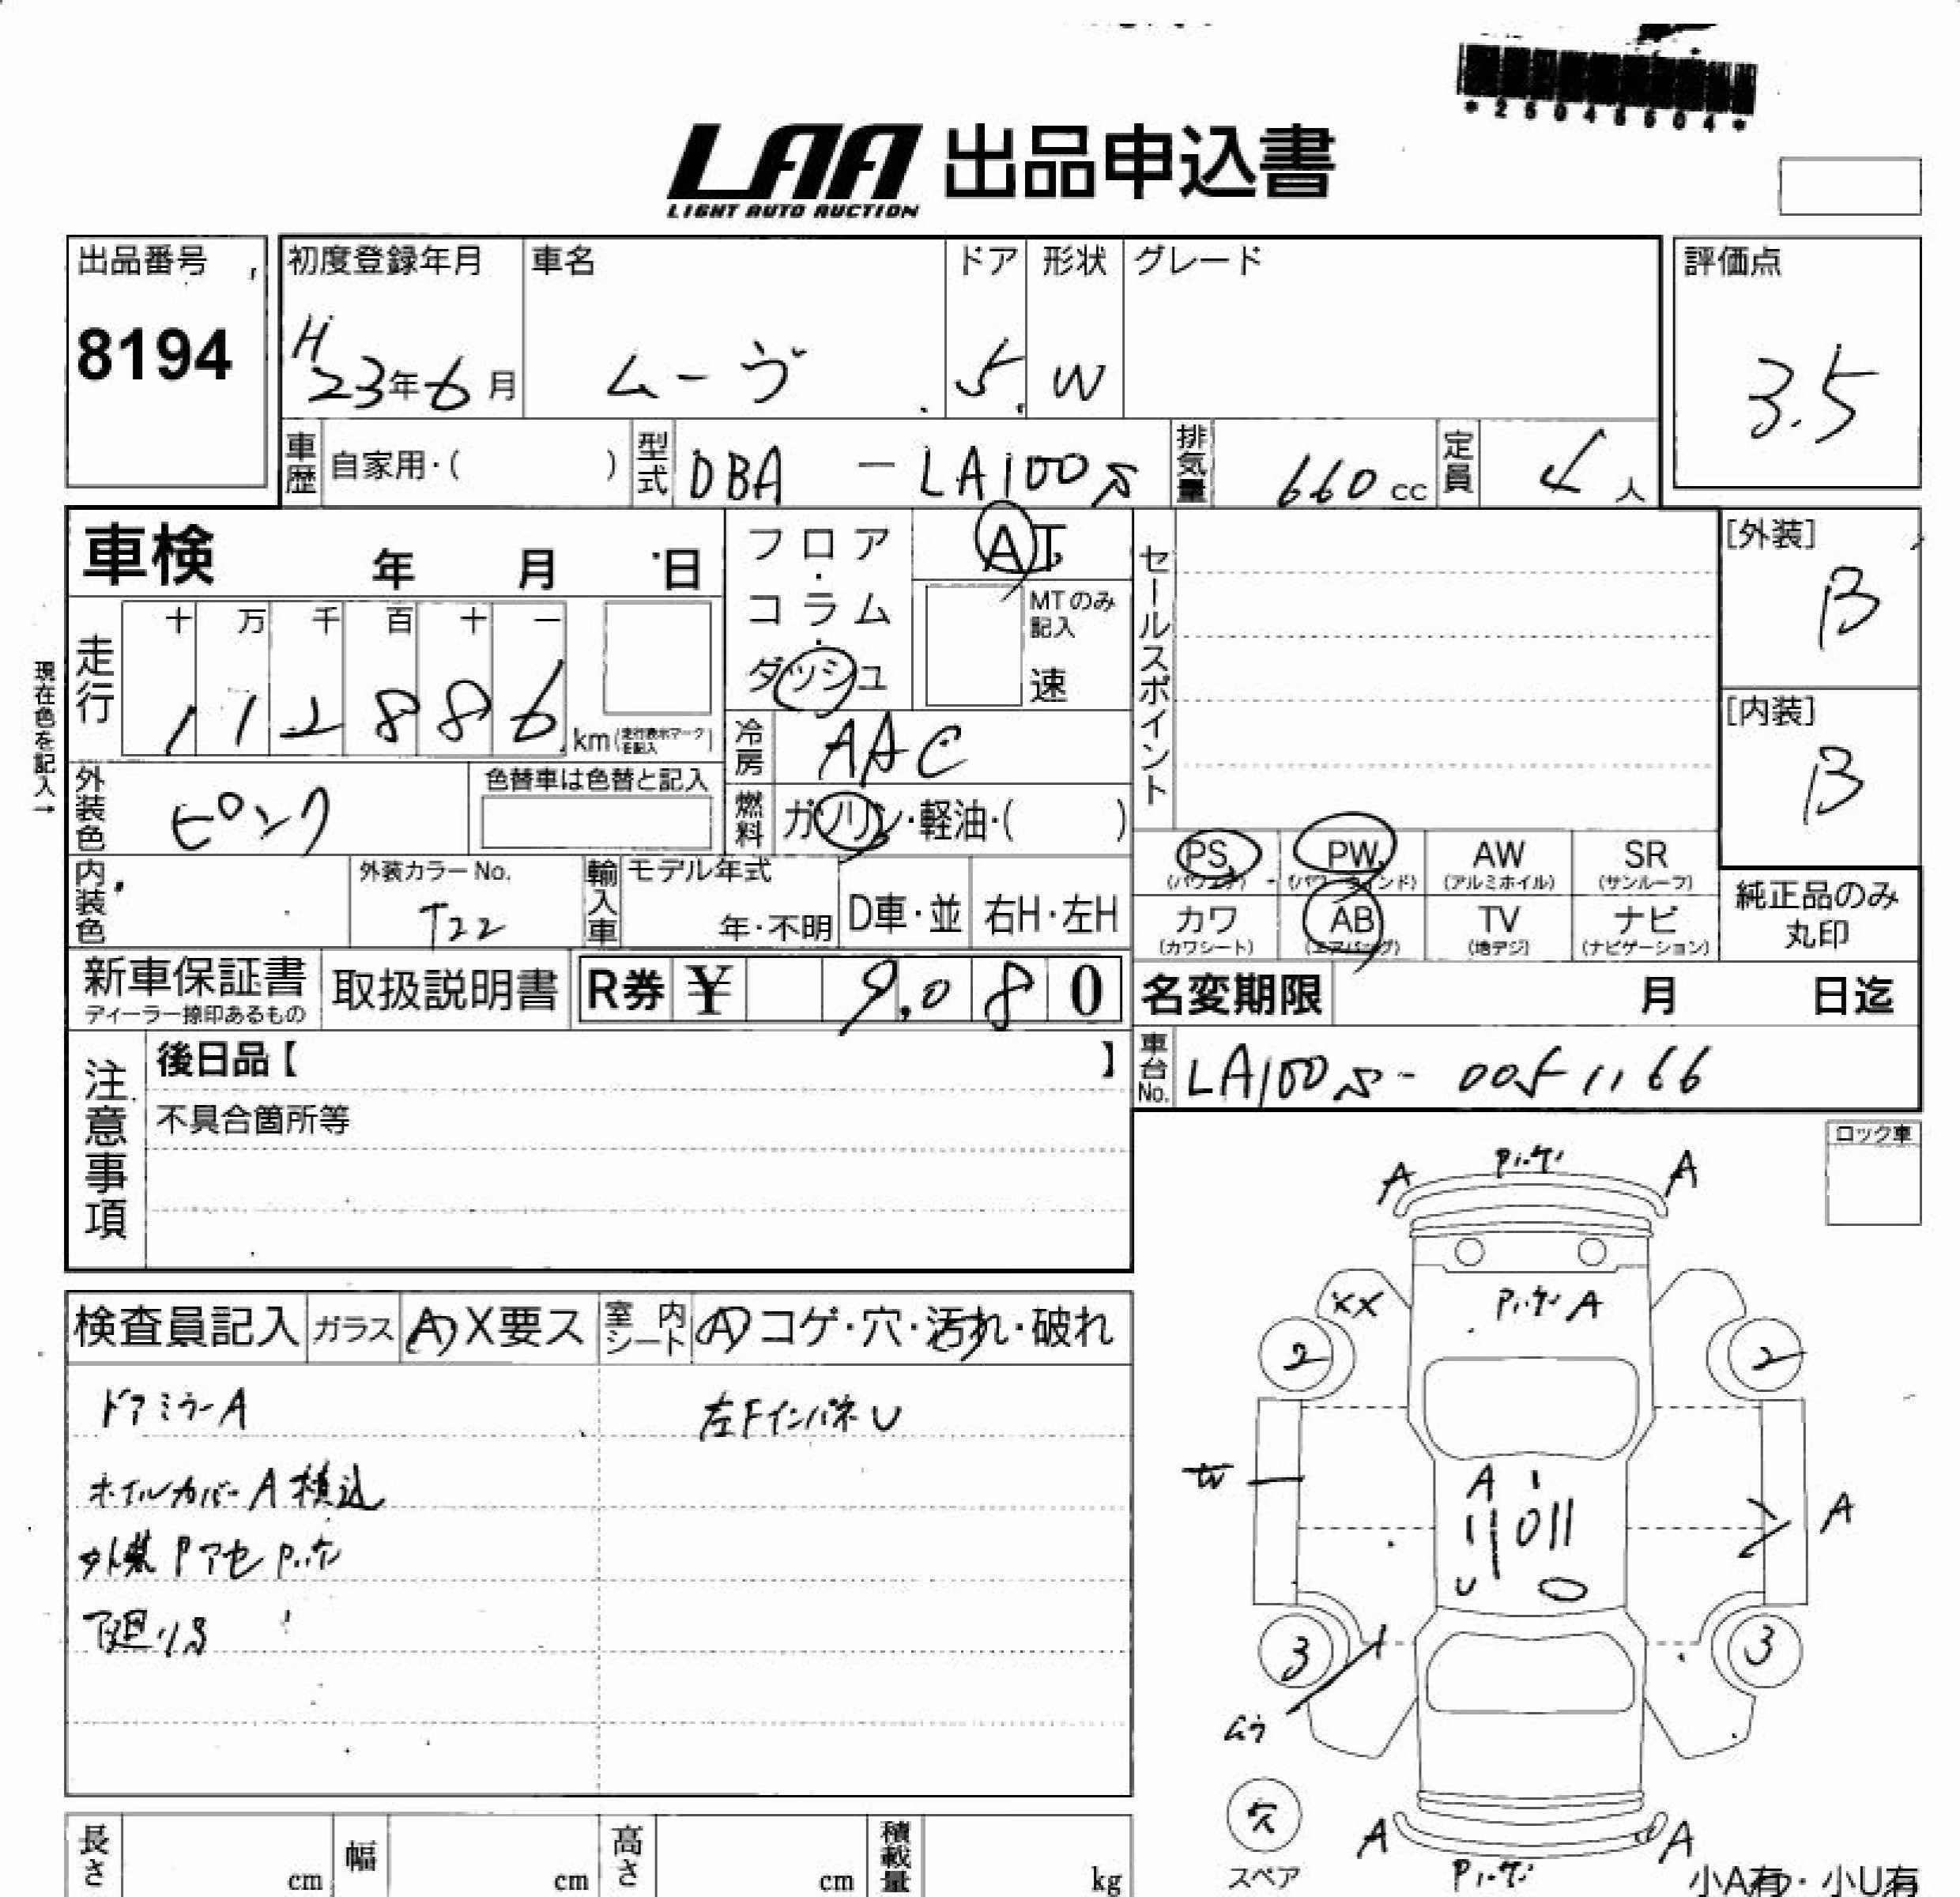 *25046504*
LAA 出品申込書
LIGHT AUTO AUCTION
出品番号
8194
初度登録年月
H
23年6月
車名
ムーヴ
ドア
5
形状
W
グレード
評価点
3.5
車歴
自家用・( )
型式
DBA - LA100S
排気量
660cc
定員
4人
車検 年 月 日
フロア・コラム・ダッシュ
AT
MTのみ記入
速
セールスポイント
[外装]
B
[内装]
B
現在色を記入→
走行
十 万 千 百 十 一
1 1 2 8 8 6
km(走行表示マークを記入)
冷房
AAC
外装色
ピンク
色替車は色替と記入
燃料
ガソリン・軽油・( )
内装色
外装カラーNo.
T22
輸入車
モデル年式
年・不明
D車・並
右H・左H
PS
(パワステ)
PW
(パワーウインド)
AW
(アルミホイル)
SR
(サンルーフ)
カワ
(カワシート)
AB
(エアバッグ)
TV
(地デジ)
ナビ
(ナビゲーション)
純正品のみ
丸印
新車保証書
ディーラー捺印あるもの
取扱説明書
R券 ¥ 9,080
名変期限 月 日迄
車台No.
LA100S-0051166
注意事項
後日品【 】
不具合箇所等
ロック車
検査員記入
ガラス
A X要ス
室内シート
A コゲ・穴・汚れ・破れ
ドアミラーA
左FインパネU
ホイルカバーA積込
外装Pアセ
下廻りS
A
A
XX
A
2
2
A
W
A
U
3
3
ムラ
欠
スペア
A
A
小A有・小U有
長さ
cm
幅
cm
高さ
cm
積載量
kg